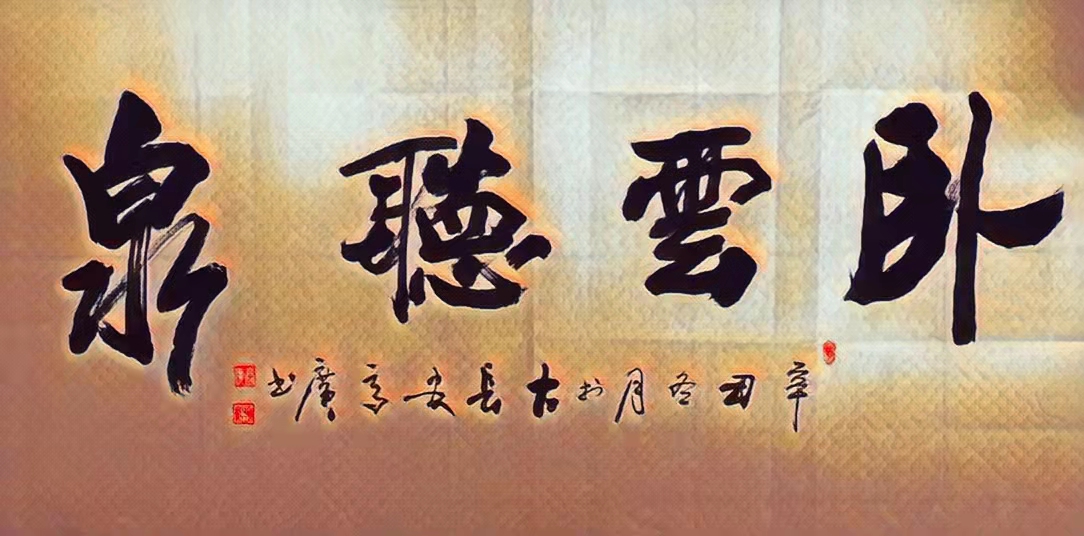 卧雲聽泉
辛丑冬月於古長安高廣书